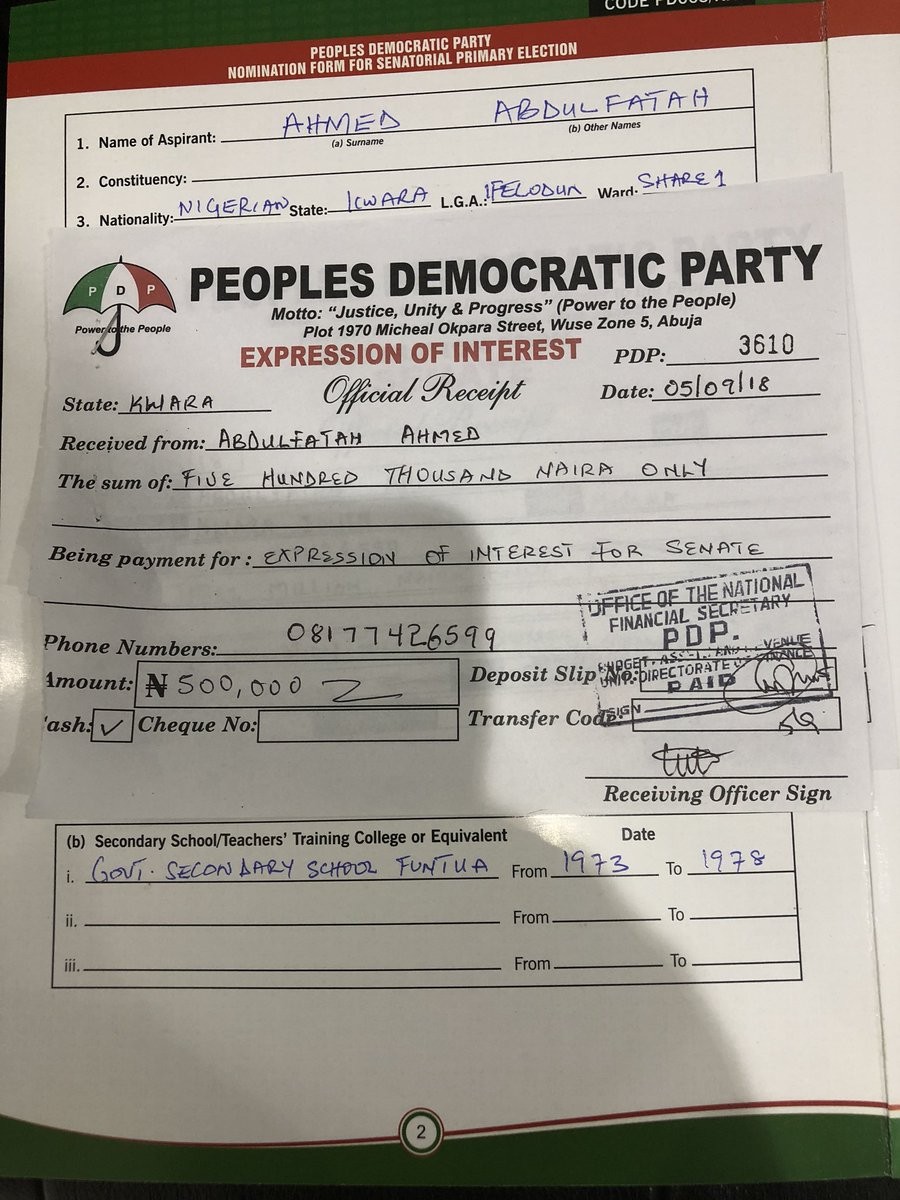 PEOPLES DEMOCRATIC PARTY
NOMINATION FORM FOR SENATORIAL PRIMARY ELECTION
1. Name of Aspirant: AHMED ABDULFATAH
(a) Surname (b) Other Names
2. Constituency:
3. Nationality: NIGERIAN State: KWARA L.G.A.: IFELODUN Ward: SHARE 1
PDP
Power to the People
PEOPLES DEMOCRATIC PARTY
Motto: "Justice, Unity & Progress" (Power to the People)
Plot 1970 Micheal Okpara Street, Wuse Zone 5, Abuja
EXPRESSION OF INTEREST PDP: 3610
State: KWARA Official Receipt Date: 05/09/18
Received from: ABDULFATAH AHMED
The sum of: FIVE HUNDRED THOUSAND NAIRA ONLY
Being payment for: EXPRESSION OF INTEREST FOR SENATE
OFFICE OF THE NATIONAL
FINANCIAL SECRETARY
PDP.
Phone Numbers: 08177426599
Amount: ₦ 500,000 Deposit Slip No:
DIRECTORATE
PAID
SIGN
ash: ✓ Cheque No: Transfer Code:
Receiving Officer Sign
(b) Secondary School/Teachers' Training College or Equivalent Date
i. GOVT. SECONDARY SCHOOL FUNTUA From 1973 To 1978
ii. From To
iii. From To
2